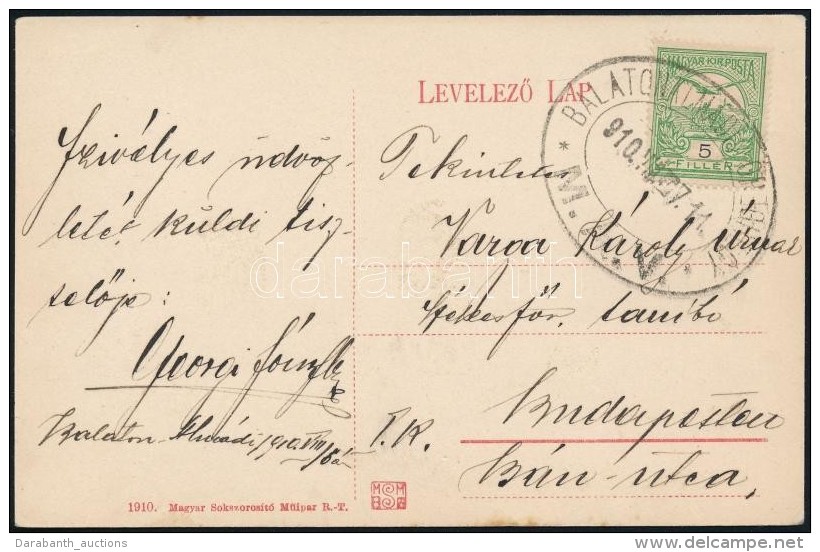 LEVELEZŐ LAP
MAGYAR KIR. POSTA
5
FILLÉR
BALATON
910.
27. 11.
Szivélyes üdvöz-
letét küldi tisz-
telője:
Georgi József
Balaton-Almádi 1910. VIII/6án
Tekintetes
Varga Károly urnak
székesfőv. tanító
Budapesten
I. K.
Bán-utca,
1910. Magyar Sokszorosító Műipar R.-T.
darabanth
Darabanth_auctions
delcampe.net